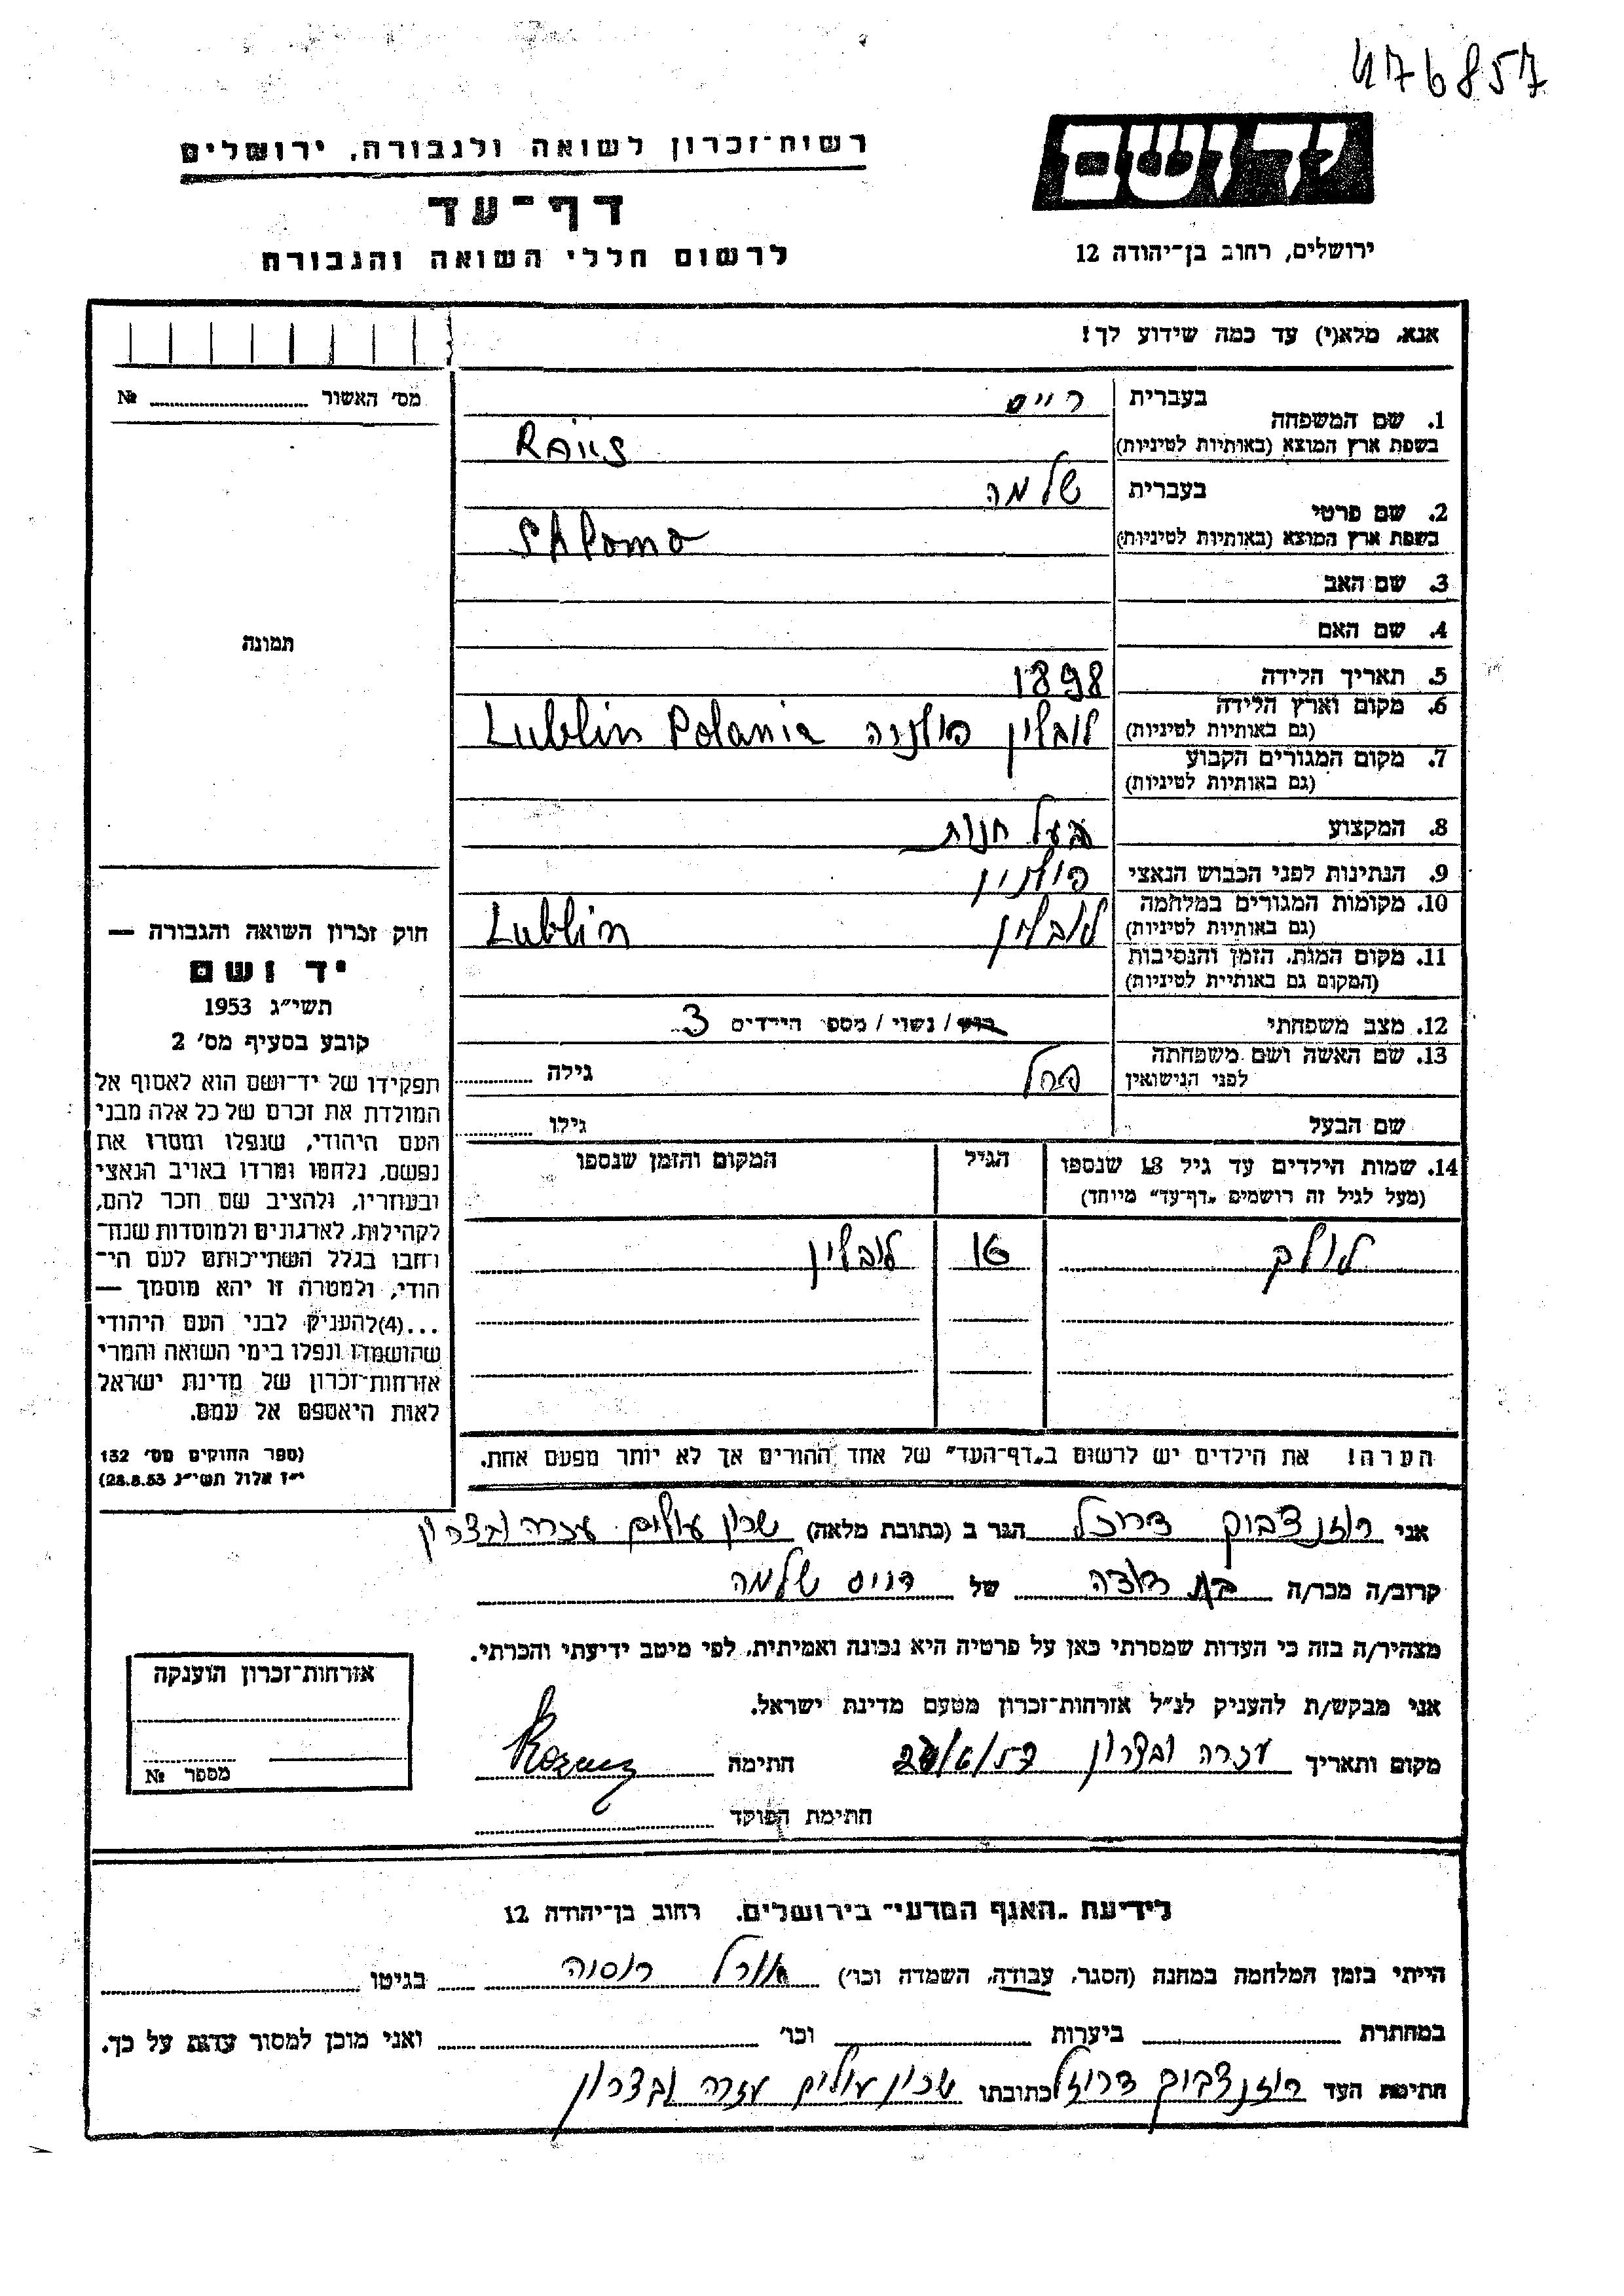 476857
יד ושם
רשות־זכרון לשואה ולגבורה, ירושלים
דף־עד
לרשום חללי השואה והגבורה
ירושלים, רחוב בן־יהודה 12
אנא, מלא(י) עד כמה שידוע לך!
מס' האשור № 
1. שם המשפחה
בעברית רייס
בשפת ארץ המוצא (באותיות לטיניות) Raiis
2. שם פרטי
בעברית שלמה
בשפת ארץ המוצא (באותיות לטיניות) Shlomo
3. שם האב
4. שם האם
5. תאריך הלידה 1898
6. מקום וארץ הלידה לובלין פולניה Lublin Polania
(גם באותיות לטיניות)
7. מקום המגורים הקבוע
(גם באותיות לטיניות)
8. המקצוע בעל חנות
9. הנתינות לפני הכבוש הנאצי
10. מקומות המגורים במלחמה לובלין Lublin
(גם באותיות לטיניות)
11. מקום המות, הזמן והנסיבות
(המקום גם באותיות לטיניות)
12. מצב משפחתי רווק / נשוי / מספר הילדים 3
13. שם האשה ושם משפחתה
לפני הנישואין גילה
שם הבעל גילו
14. שמות הילדים עד גיל 18 שנספו
(מעל לגיל זה רושמים „דף־עד" מיוחד)
הגיל
המקום והזמן שנספו
לולק 16 לובלין
הערה! את הילדים יש לרשום ב„דף־העד" של אחד ההורים אך לא יותר מפעם אחת.
תמונה
חוק זכרון השואה והגבורה —
יד ושם
תשי"ג 1953
קובע בסעיף מס' 2
תפקידו של יד־ושם הוא לאסוף אל
המולדת את זכרם של כל אלה מבני
העם היהודי, שנפלו ומסרו את
נפשם, נלחמו ומרדו באויב הנאצי
ובעוזריו, ולהציב שם וזכר להם,
לקהילות, לארגונים ולמוסדות שנח־
רחבו בגלל השתייכותם לעם הי־
הודי, ולמטרה זו יהא מוסמך —
...(4)להעניק לבני העם היהודי
שהושמדו ונפלו בימי השואה והמרי
אזרחות־זכרון של מדינת ישראל
לאות היאספם אל עמם.
(ספר החוקים מס' 132
י"ז אלול תשי"ג 28.8.53)
אני רוזנצבוק הגר ב (כתובת מלאה) שכון עולים עזרה ובצרון
קרוב/ה מכר/ה בת דודה של רייס שלמה
מצהיר/ה בזה כי העדות שמסרתי כאן על פרטיה היא נכונה ואמיתית, לפי מיטב ידיעתי והכרתי.
אני מבקש/ת להעניק לנ"ל אזרחות־זכרון מטעם מדינת ישראל.
מקום ותאריך עזרה ובצרון חתימה
חתימת הפוקד
אזרחות־זכרון הוענקה
מספר №
לידיעת „האגף המדעי" בירושלים, רחוב בן־יהודה 12
הייתי בזמן המלחמה במחנה (הסגר, עבודה, השמדה וכו') אורל רוסיה בגיטו
במחתרת ביערות וכו' ואני מוכן למסור עדות על כך.
חתימת העד רוזנצבוק כתובתו שכון עולים עזרה ובצרון